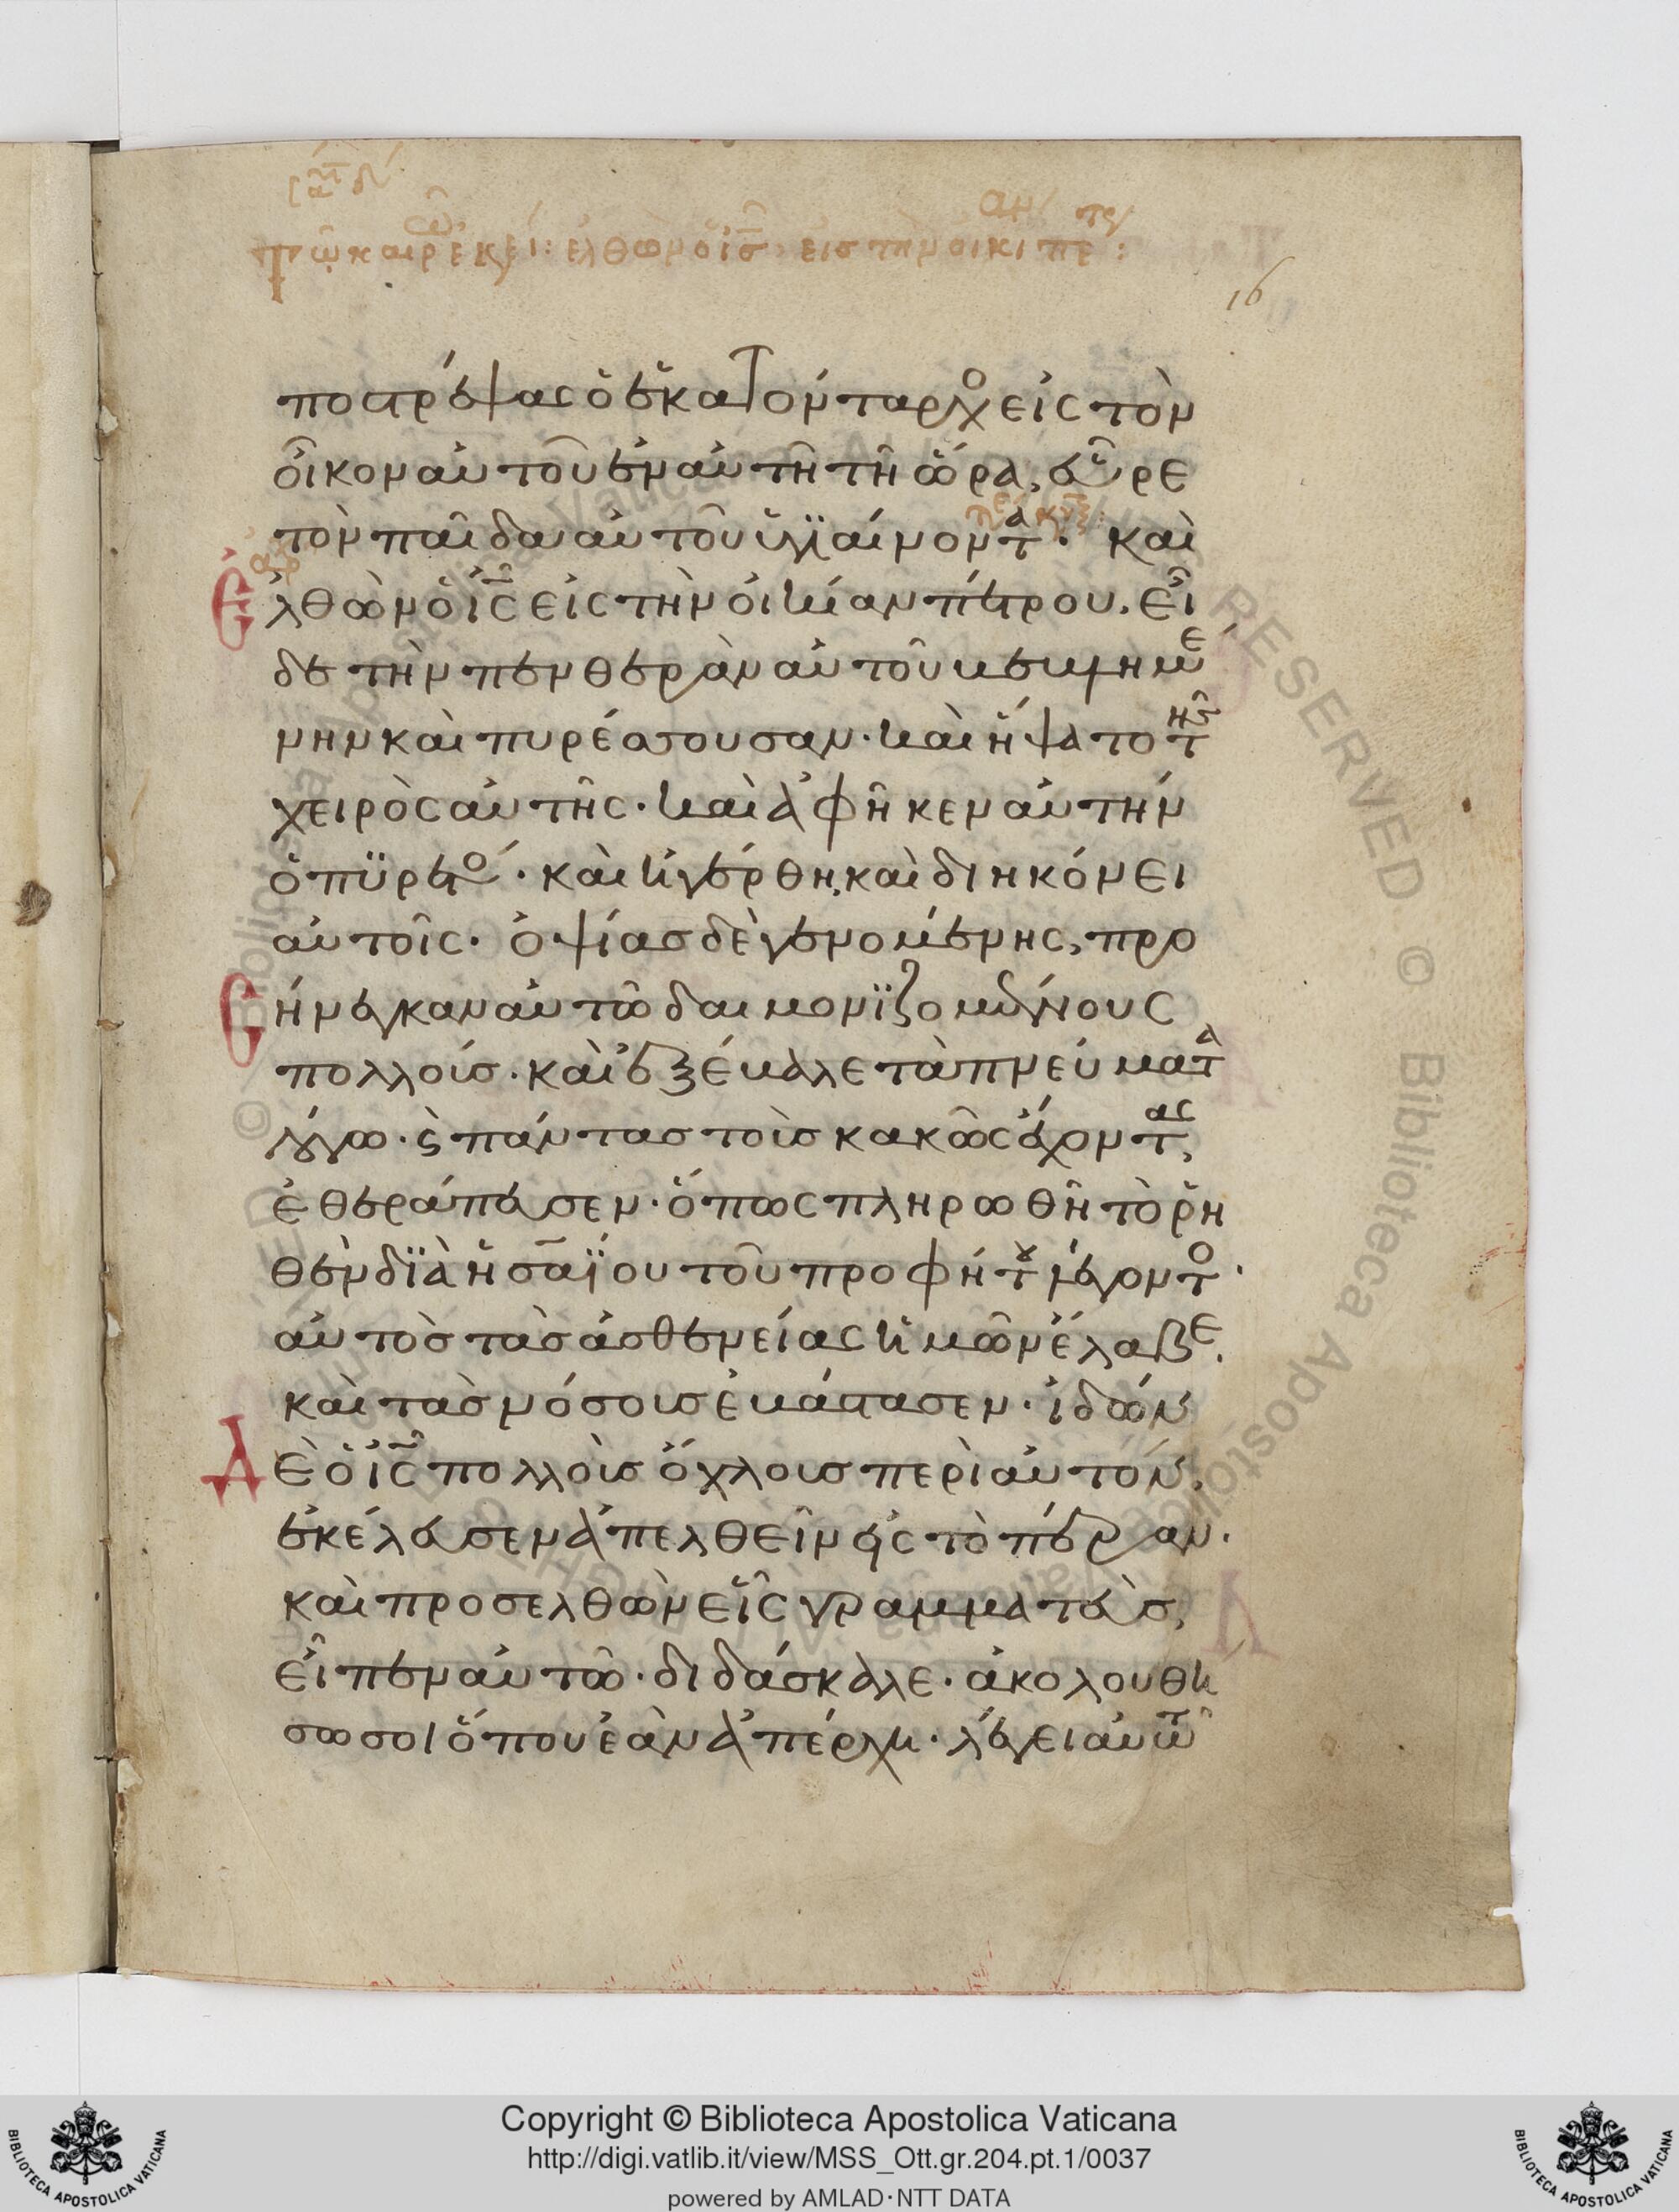 τῶ καιρ ἐκεί: ελθὼν ὁ ι̅ς̅ εισ τὴν οικι πε:
16
ποστρέψας ὁ ἑκατόνταρχο εἰς τὸν
οἶκον αὐτοῦ ἐν αὐτῆ τῆ ὥρα, εὗρε
τὸν παῖδα αὐτοῦ ὑγϊαίνοντα· καὶ
Ἐλθὼν ὁ ι̅ς̅ εἰς τὴν οἰκίαν πέτρου. εἶ
δε τὴν πενθερὰν αὐτοῦ βεβλημέ
νην καὶ πυρέσσουσαν· καὶ ἥψατο τῆς
χειρὸς αὐτῆς· καὶ ἀφῆκεν αὐτὴν
ὁ πϋρετό· καὶ ἠγέρθη, καὶ διηκόνει
αὐτοῖς· ὀψίας δὲ γενομένης, προ
Σήνεγκαν αὐτῶ δαιμονϊζομένους
πολλούσ· καὶ ἐξέβαλε τὰ πνεύματα
λόγω· ϛ πάντας τοὺσ κακῶς ἔχοντας,
ἐθεράπευσεν· ὅπως πληρωθῆ τὸ ῥη
θὲν δϊὰ ἠσαΐου τοῦ προφήτου λέγοντο·
αὐτὸσ τὰσ ἀσθενείας ἡμῶν ἔλαβε,
καὶ τὰσ νόσουσ ἐβάστασεν· ἰδὼν
Δὲ ὁ ι̅ς̅ πολλοὺσ ὄχλουσ περὶ αὐτόν,
ἐκέλευσεν ἀπελθεῖν εἰς τὸ πέραν·
καὶ προσελθὼν εἷς γραμματεὺσ,
εἶπεν αὐτῶ· διδάσκαλε· ἀκολουθή
σω σοι ὅπου ἐὰν ἀπέρχη· λέγει αὐτῶ
RESERVED © Biblioteca Apostolica Vaticana
Copyright © Biblioteca Apostolica Vaticana
http://digi.vatlib.it/view/MSS_Ott.gr.204.pt.1/0037
powered by AMLAD·NTT DATA
BIBLIOTECA APOSTOLICA VATICANA
BIBLIOTECA APOSTOLICA VATICANA